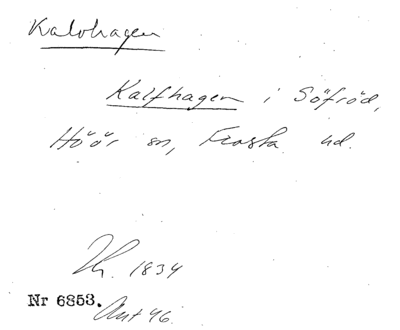 Kalvhagen
Kalfhagen i Söfröd,
Höör sn, Frosta hd.
Th. 1834
Nr 6853. Ant 46.